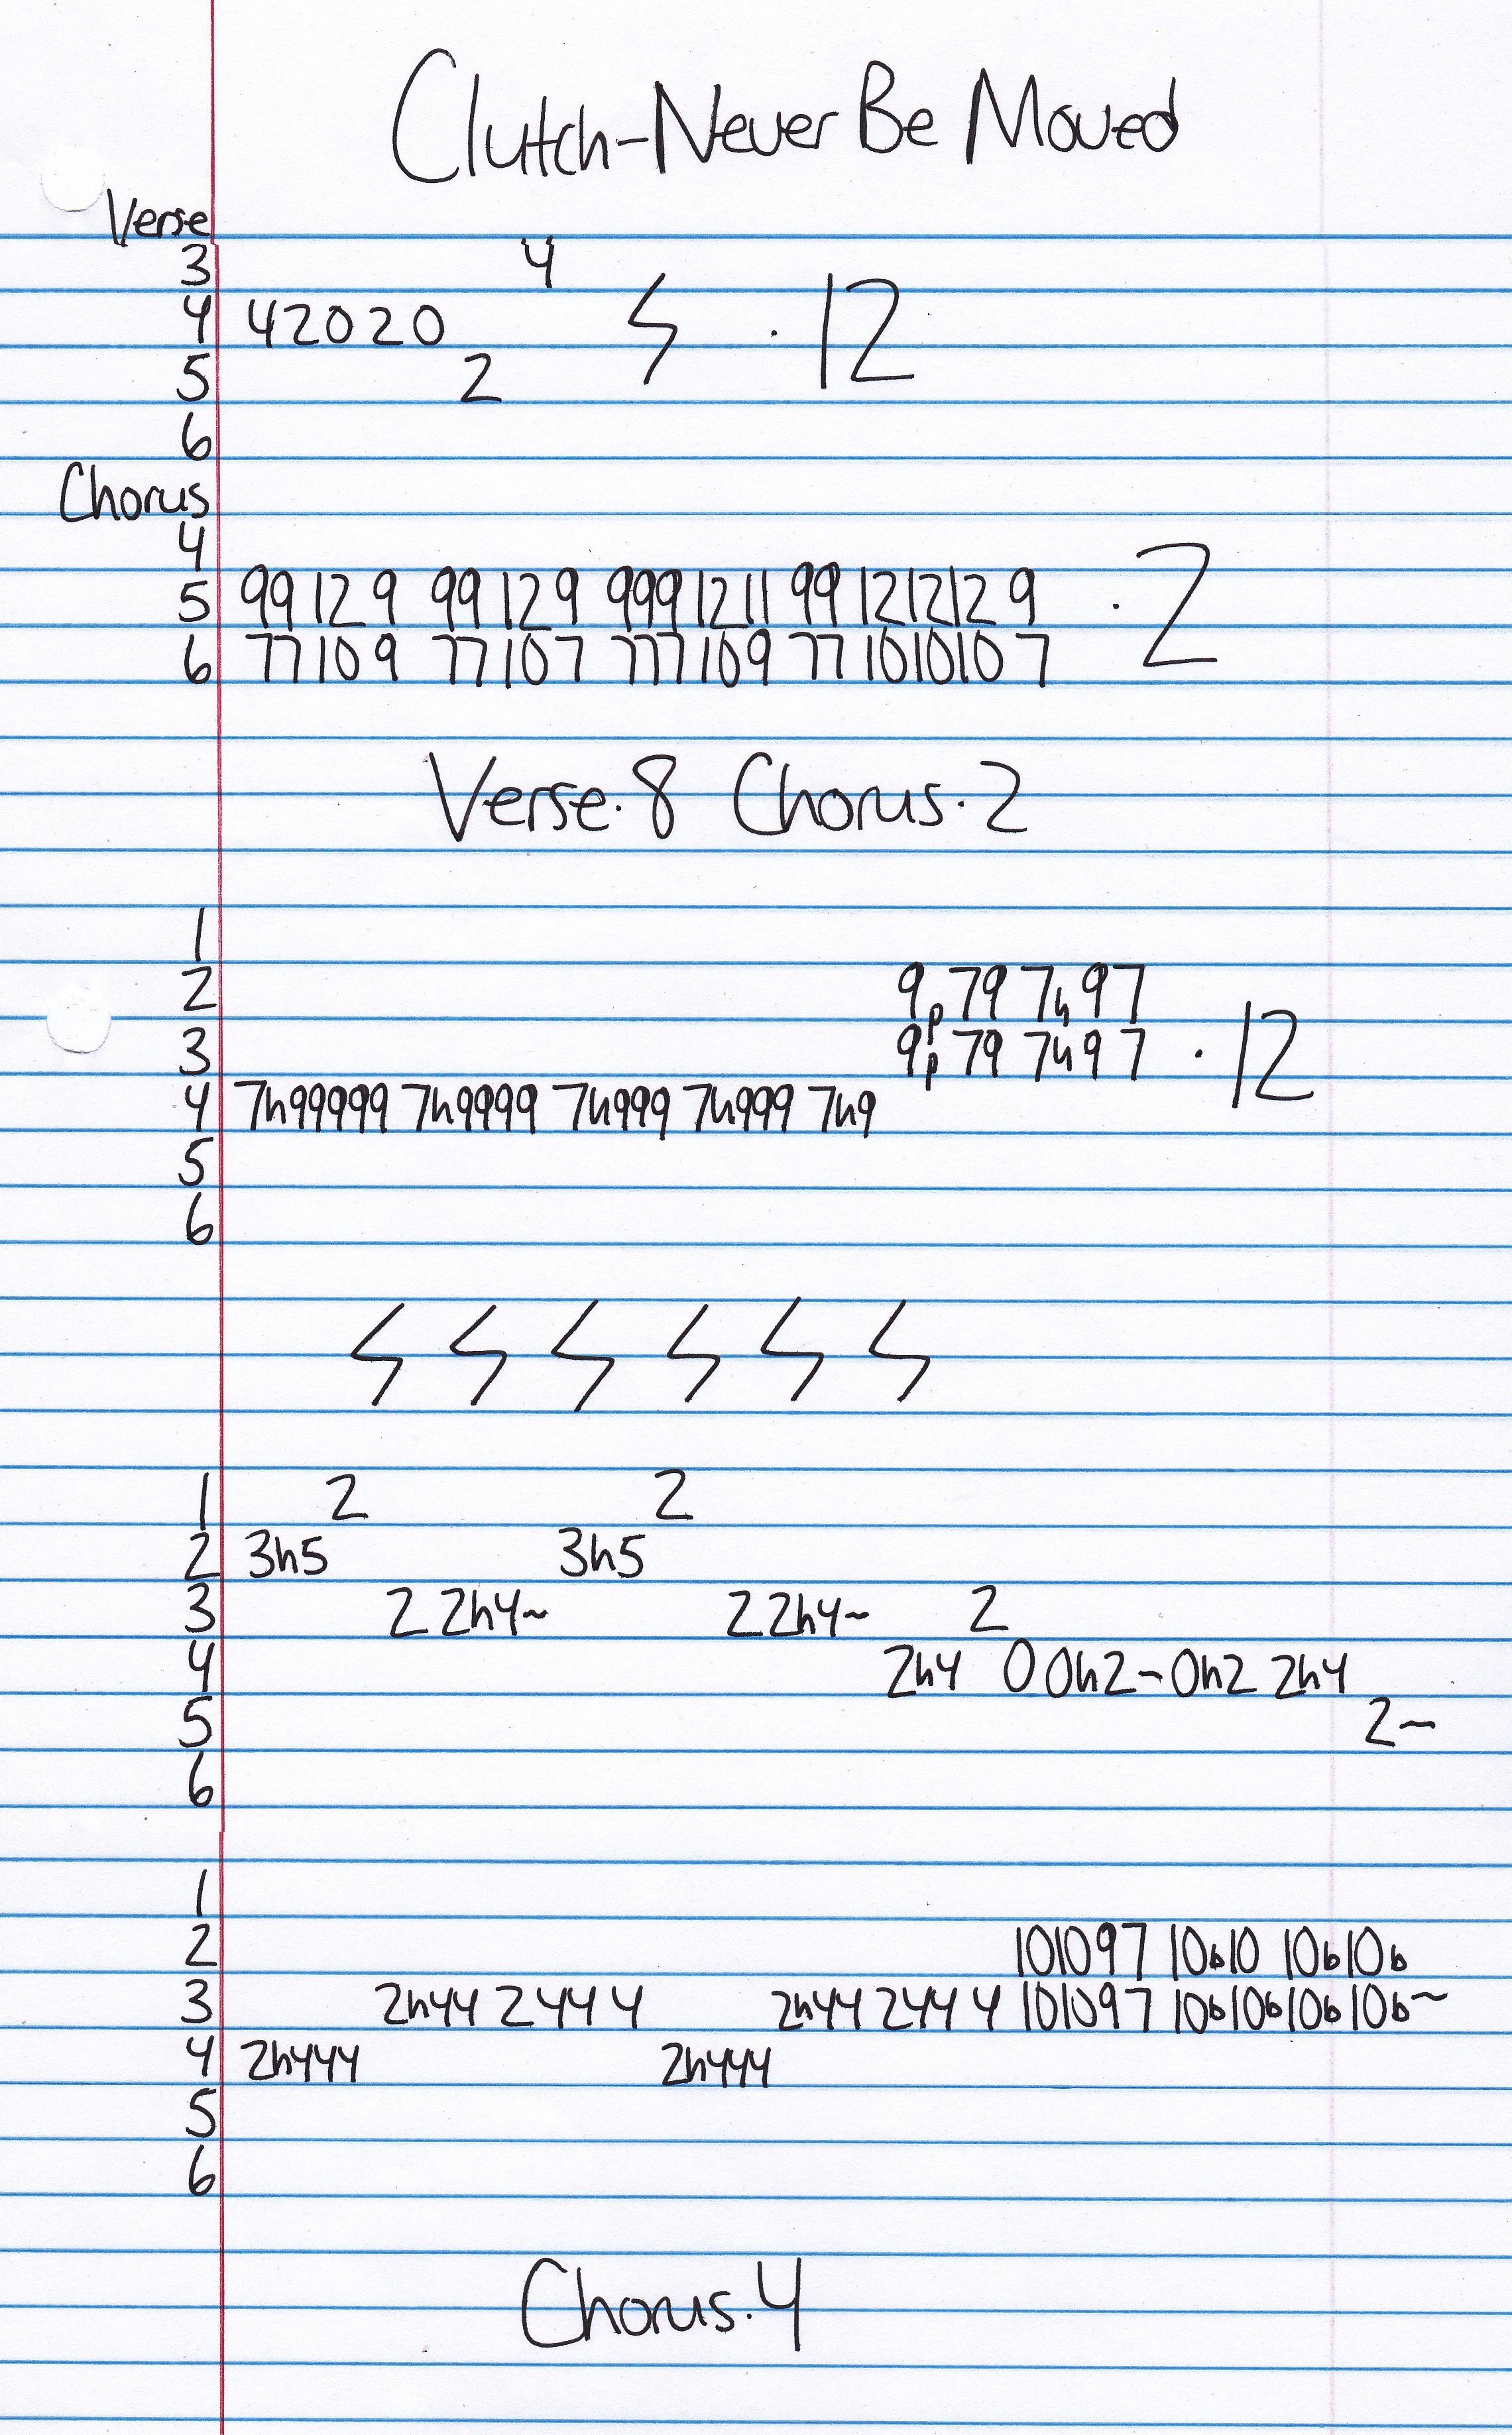 Clutch-Never Be Moved
Verse
3 4
4 42020 · 12
5 2
6
Chorus
4
5 99129 99129 9991211 991212129 · 2
6 77109 77107 777109 771010107
Verse·8 Chorus·2
1
2 9p79 7h97
3 9p79 7h97 · 12
4 7h99999 7h9999 7h999 7h999 7h9
5
6
1 2 2
2 3h5 3h5
3 2 2h4~ 2 2h4~ 2
4 2h4 0 0h2~0h2 2h4
5 2~
6
1
2 101097 10b10 10b10b
3 2h44 2444 2h44 2444 101097 10b10b10b10b~
4 2h444 2h444
5
6
Chorus·4